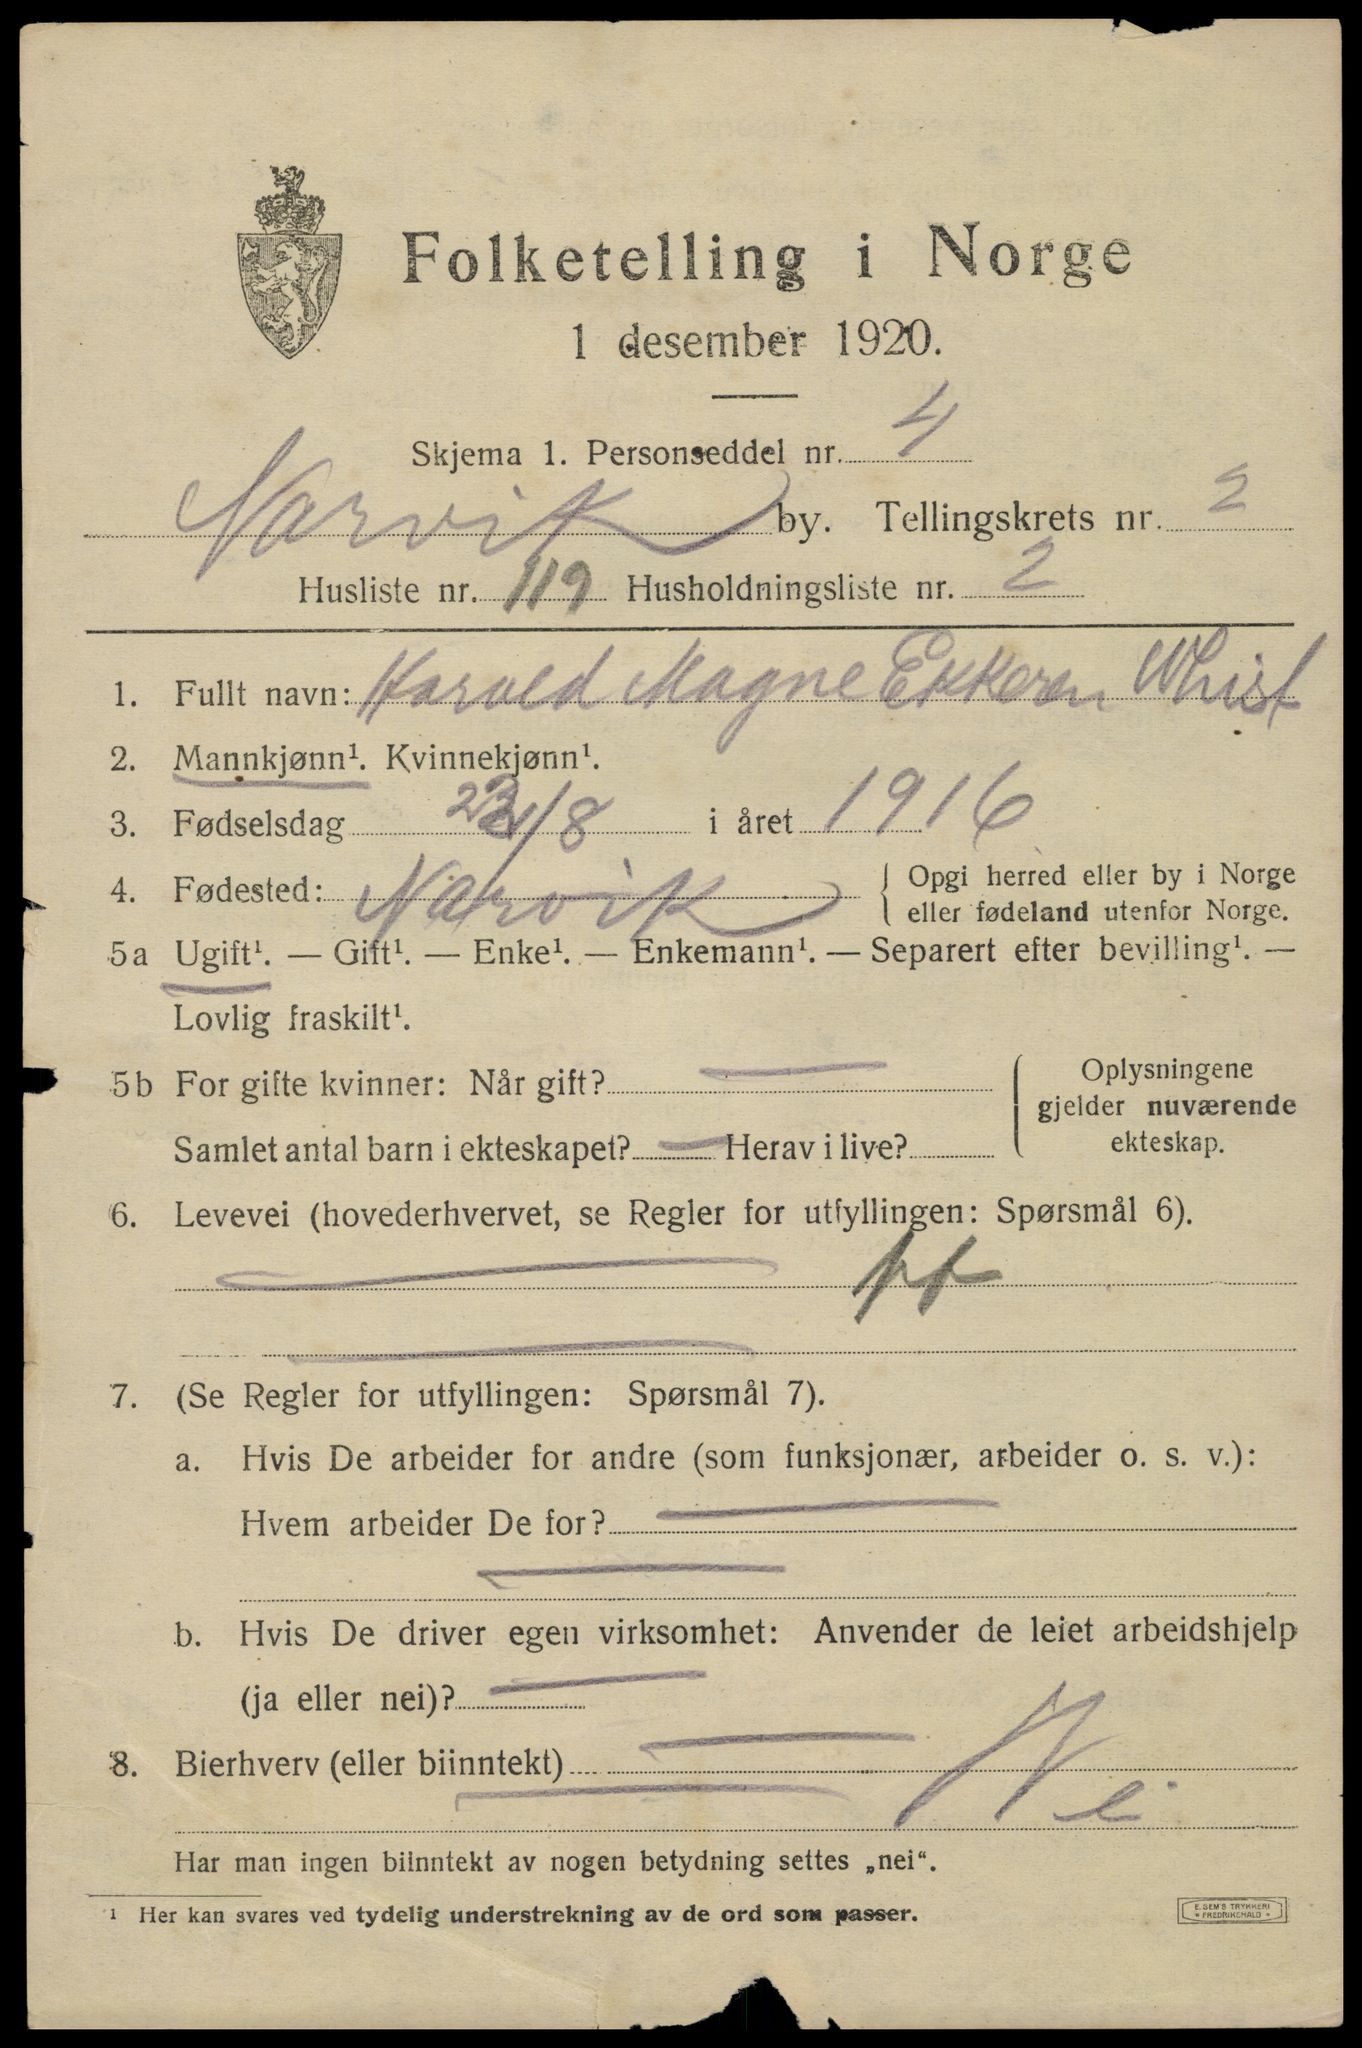 Folketelling i Norge
1 desember 1920.
Skjema 1. Personseddel nr. 4
Narvik by. Tellingskrets nr. 2
Husliste nr. 119 Husholdningsliste nr. 2
1. Fullt navn: Harald Magne Ekkeren Whist
2. Mannkjønn¹. Kvinnekjønn¹.
3. Fødselsdag 23/8 i året 1916
4. Fødested: Narvik { Opgi herred eller by i Norge
eller fødeland utenfor Norge.
5a Ugift¹. — Gift¹. — Enke¹. — Enkemann¹. — Separert efter bevilling¹. —
Lovlig fraskilt¹.
5b For gifte kvinner: Når gift? — { Oplysningene
gjelder nuværende
ekteskap.
Samlet antal barn i ekteskapet? — Herav i live?
6. Levevei (hovederhvervet, se Regler for utfyllingen: Spørsmål 6).
7. (Se Regler for utfyllingen: Spørsmål 7).
a. Hvis De arbeider for andre (som funksjonær, arbeider o. s. v.):
Hvem arbeider De for? —
b. Hvis De driver egen virksomhet: Anvender de leiet arbeidshjelp
(ja eller nei)? —
8. Bierhverv (eller biinntekt) — Nei
Har man ingen biinntekt av nogen betydning settes „nei“.
¹ Her kan svares ved tydelig understrekning av de ord som passer.
E. SEM'S TRYKKERI
* FREDRIKSHALD *